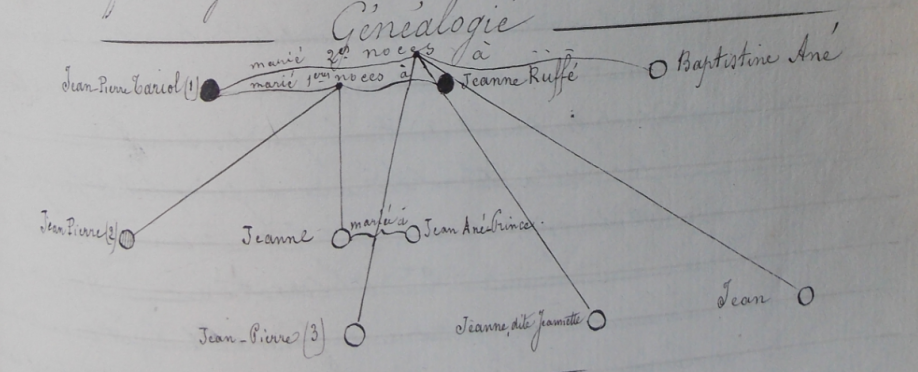 Généalogie
marié 2es noces à
Jean-Pierre Cariol (1) marié 1ères noces à Jeanne Ruffé Baptistine Ané
Jean Pierre (2) Jeanne mariée à Jean Ané-Prince
Jean-Pierre (3) Jeanne, dite Jeannette Jean